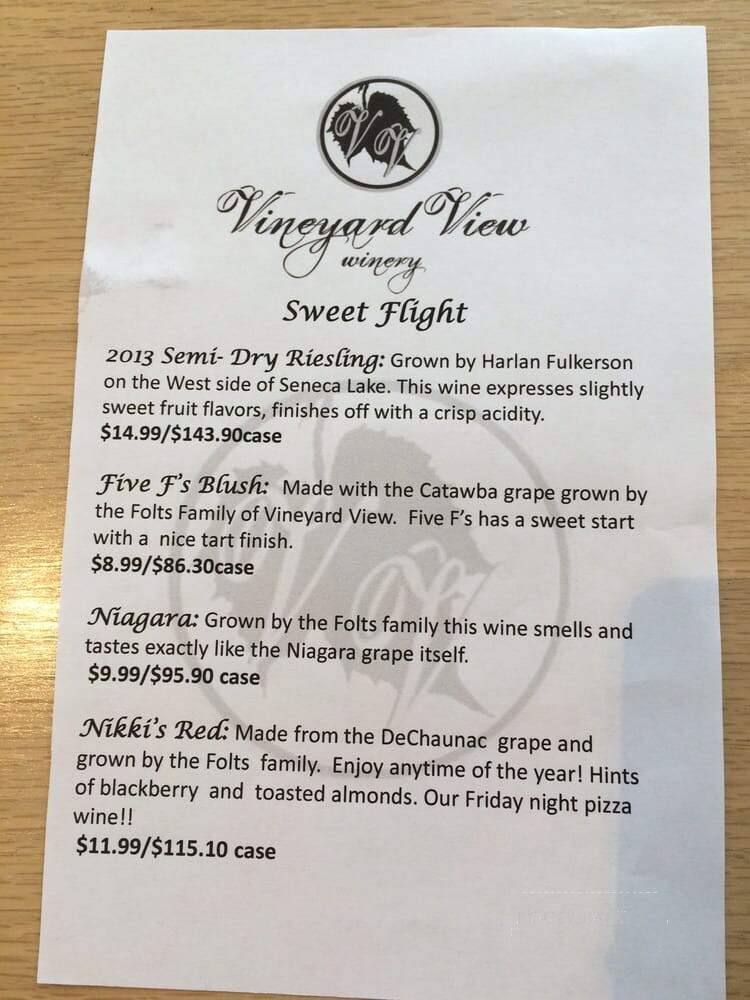 VV
Vineyard View
winery
Sweet Flight
2013 Semi- Dry Riesling: Grown by Harlan Fulkerson
on the West side of Seneca Lake. This wine expresses slightly
sweet fruit flavors, finishes off with a crisp acidity.
$14.99/$143.90case
Five F's Blush: Made with the Catawba grape grown by
the Folts Family of Vineyard View. Five F's has a sweet start
with a nice tart finish.
$8.99/$86.30case
Niagara: Grown by the Folts family this wine smells and
tastes exactly like the Niagara grape itself.
$9.99/$95.90 case
Nikki's Red: Made from the DeChaunac grape and
grown by the Folts family. Enjoy anytime of the year! Hints
of blackberry and toasted almonds. Our Friday night pizza
wine!!
$11.99/$115.10 case